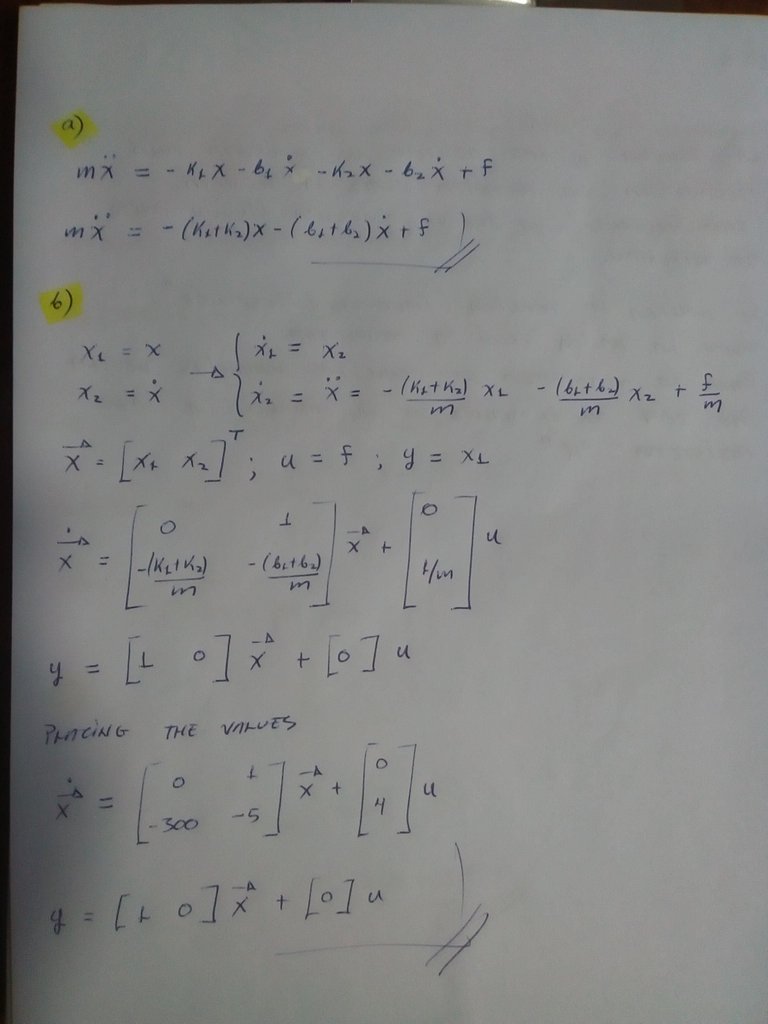 a)
mẍ = - K₁x - b₁ẋ - K₂x - b₂ẋ + f
mẍ = -(K₁+K₂)x - (b₁+b₂)ẋ + f
b)
x₁ = x → { ẋ₁ = x₂
x₂ = ẋ ẋ₂ = ẍ = -(K₁+K₂)/m x₁ -(b₁+b₂)/m x₂ + f/m
x⃗ = [x₁ x₂]ᵀ ; u = f ; y = x₁
ẋ⃗ = [0 1; -(K₁+K₂)/m -(b₁+b₂)/m] x⃗ + [0; 1/m] u
y = [1 0] x⃗ + [0] u
PLACING THE VALUES
ẋ⃗ = [0 1; -300 -5] x⃗ + [0; 4] u
y = [1 0] x⃗ + [0] u